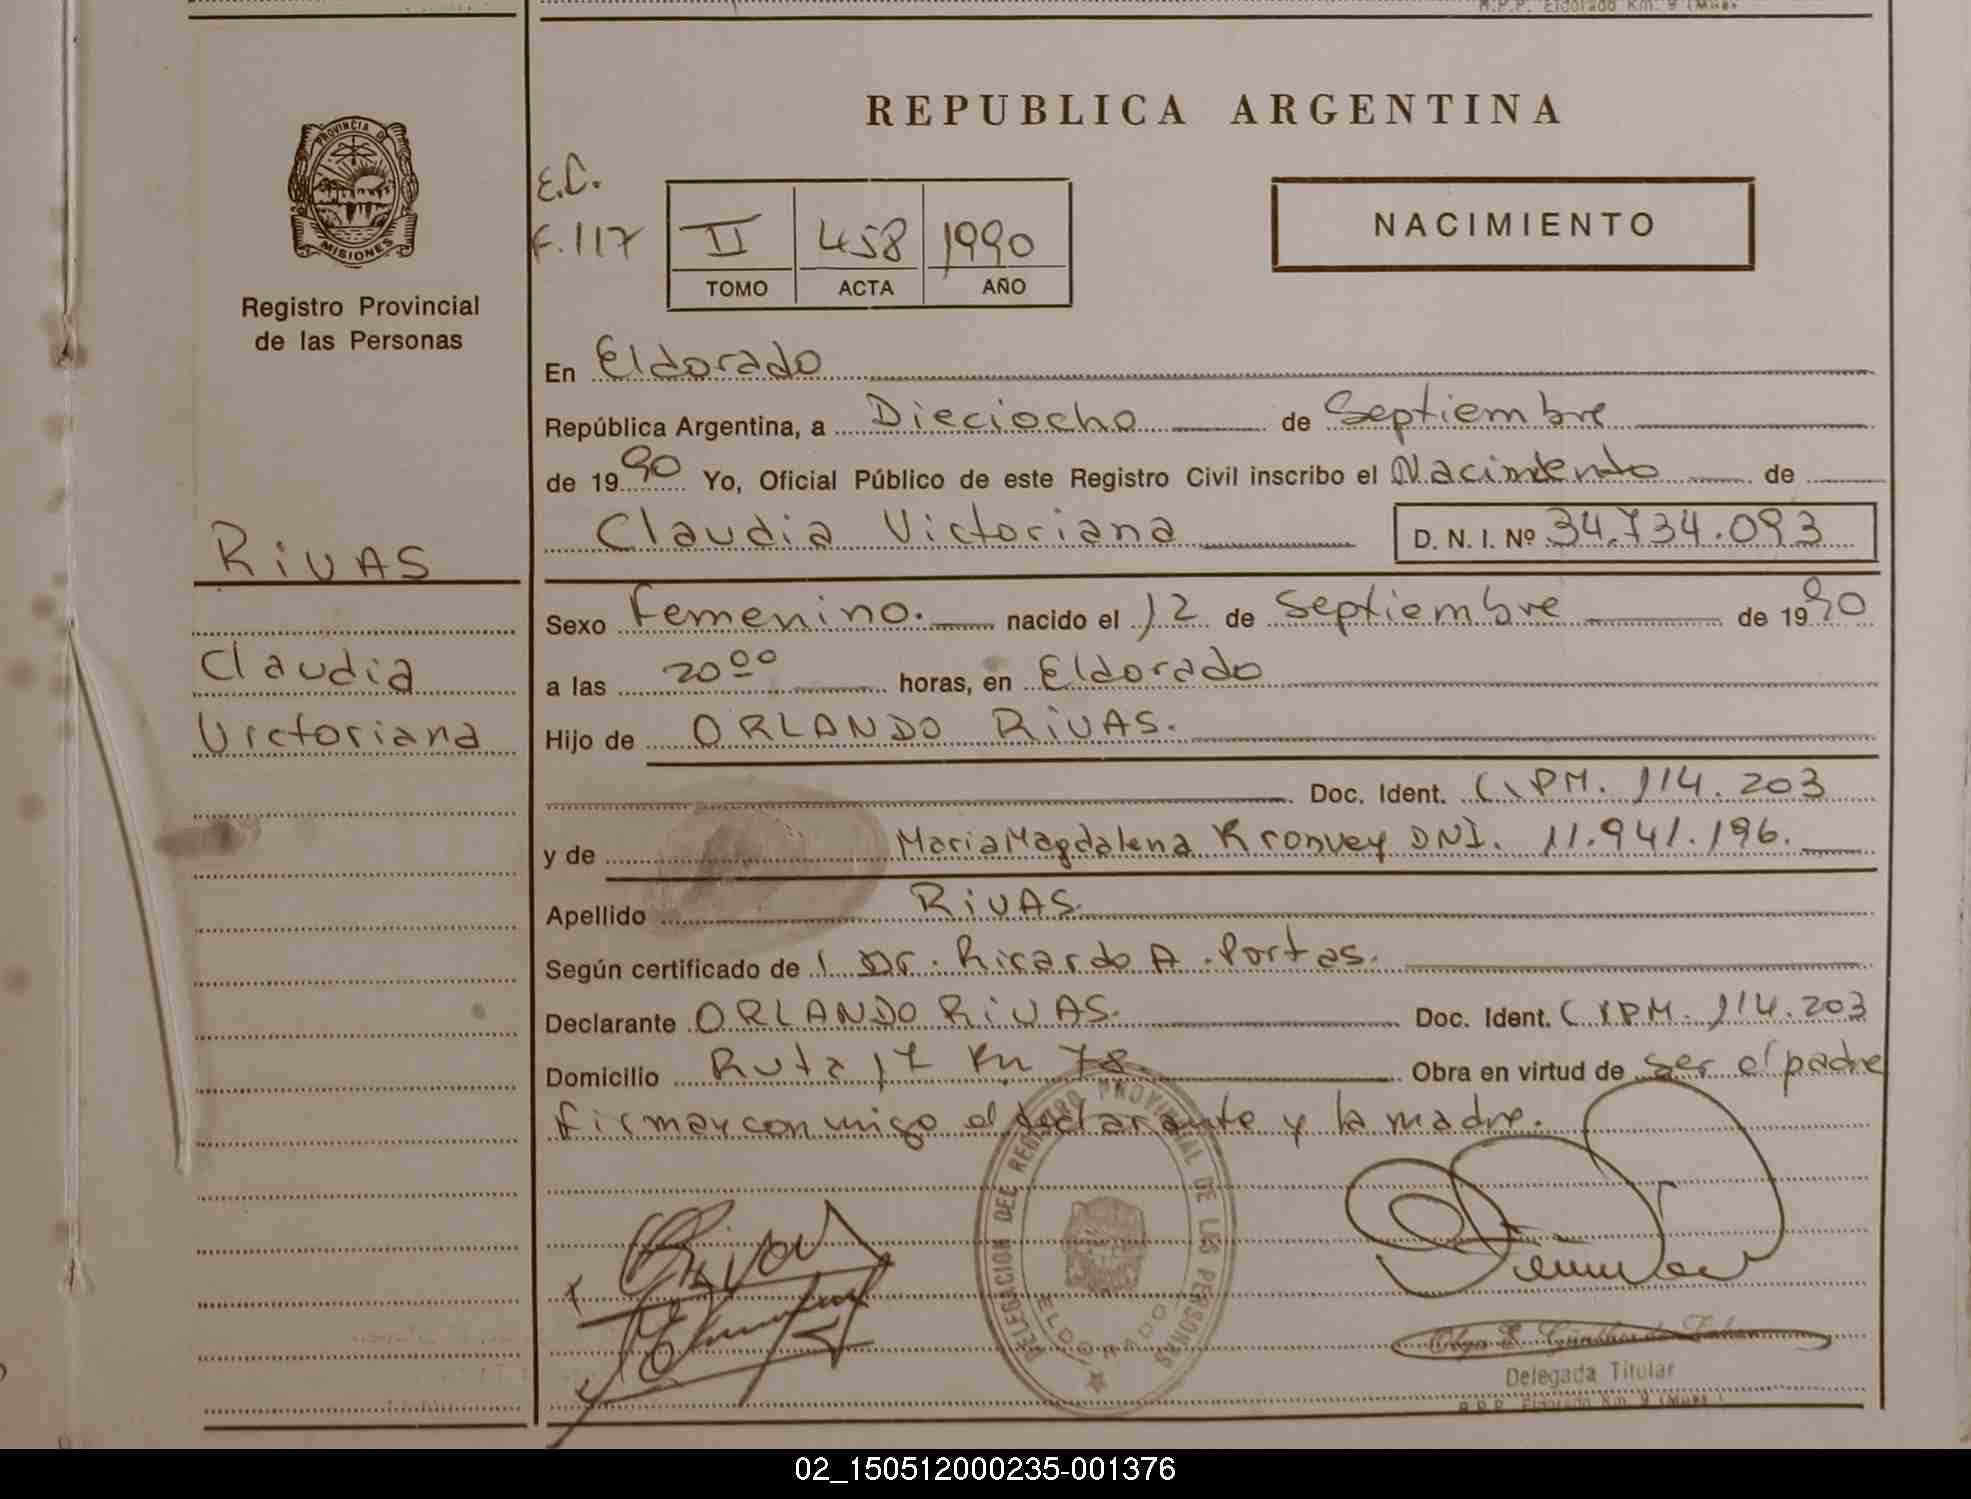 REPUBLICA ARGENTINA
PROVINCIA DE MISIONES
Registro Provincial
de las Personas
E.C.
F.117
II 458 1990
TOMO ACTA AÑO
NACIMIENTO
En Eldorado
República Argentina, a Dieciocho de Septiembre
de 1990 Yo, Oficial Público de este Registro Civil inscribo el Nacimiento de
Claudia Victoriana D. N. I. Nº 34.734.093
RIVAS
Claudia
Victoriana
Sexo Femenino. nacido el 12 de Septiembre de 1990
a las 20 00 horas, en Eldorado
Hijo de ORLANDO RIVAS.
Doc. Ident. C.I.P.M. 114.203
y de Maria Magdalena Kronvey DNI. 11.941.196.
Apellido RIVAS.
Según certificado de Dr. Ricardo A. Portas.
Declarante ORLANDO RIVAS. Doc. Ident. C.I.P.M. 114.203
Domicilio Ruta 17 Km 78 Obra en virtud de ser el padre
firman conmigo el declarante y la madre.
DELEGACION DEL REGISTRO PROVINCIAL DE LAS PERSONAS
ELDORADO
Rivas
Delegada Titular
R.P.P. Eldorado Km. 9 (Mnes)
02_150512000235-001376